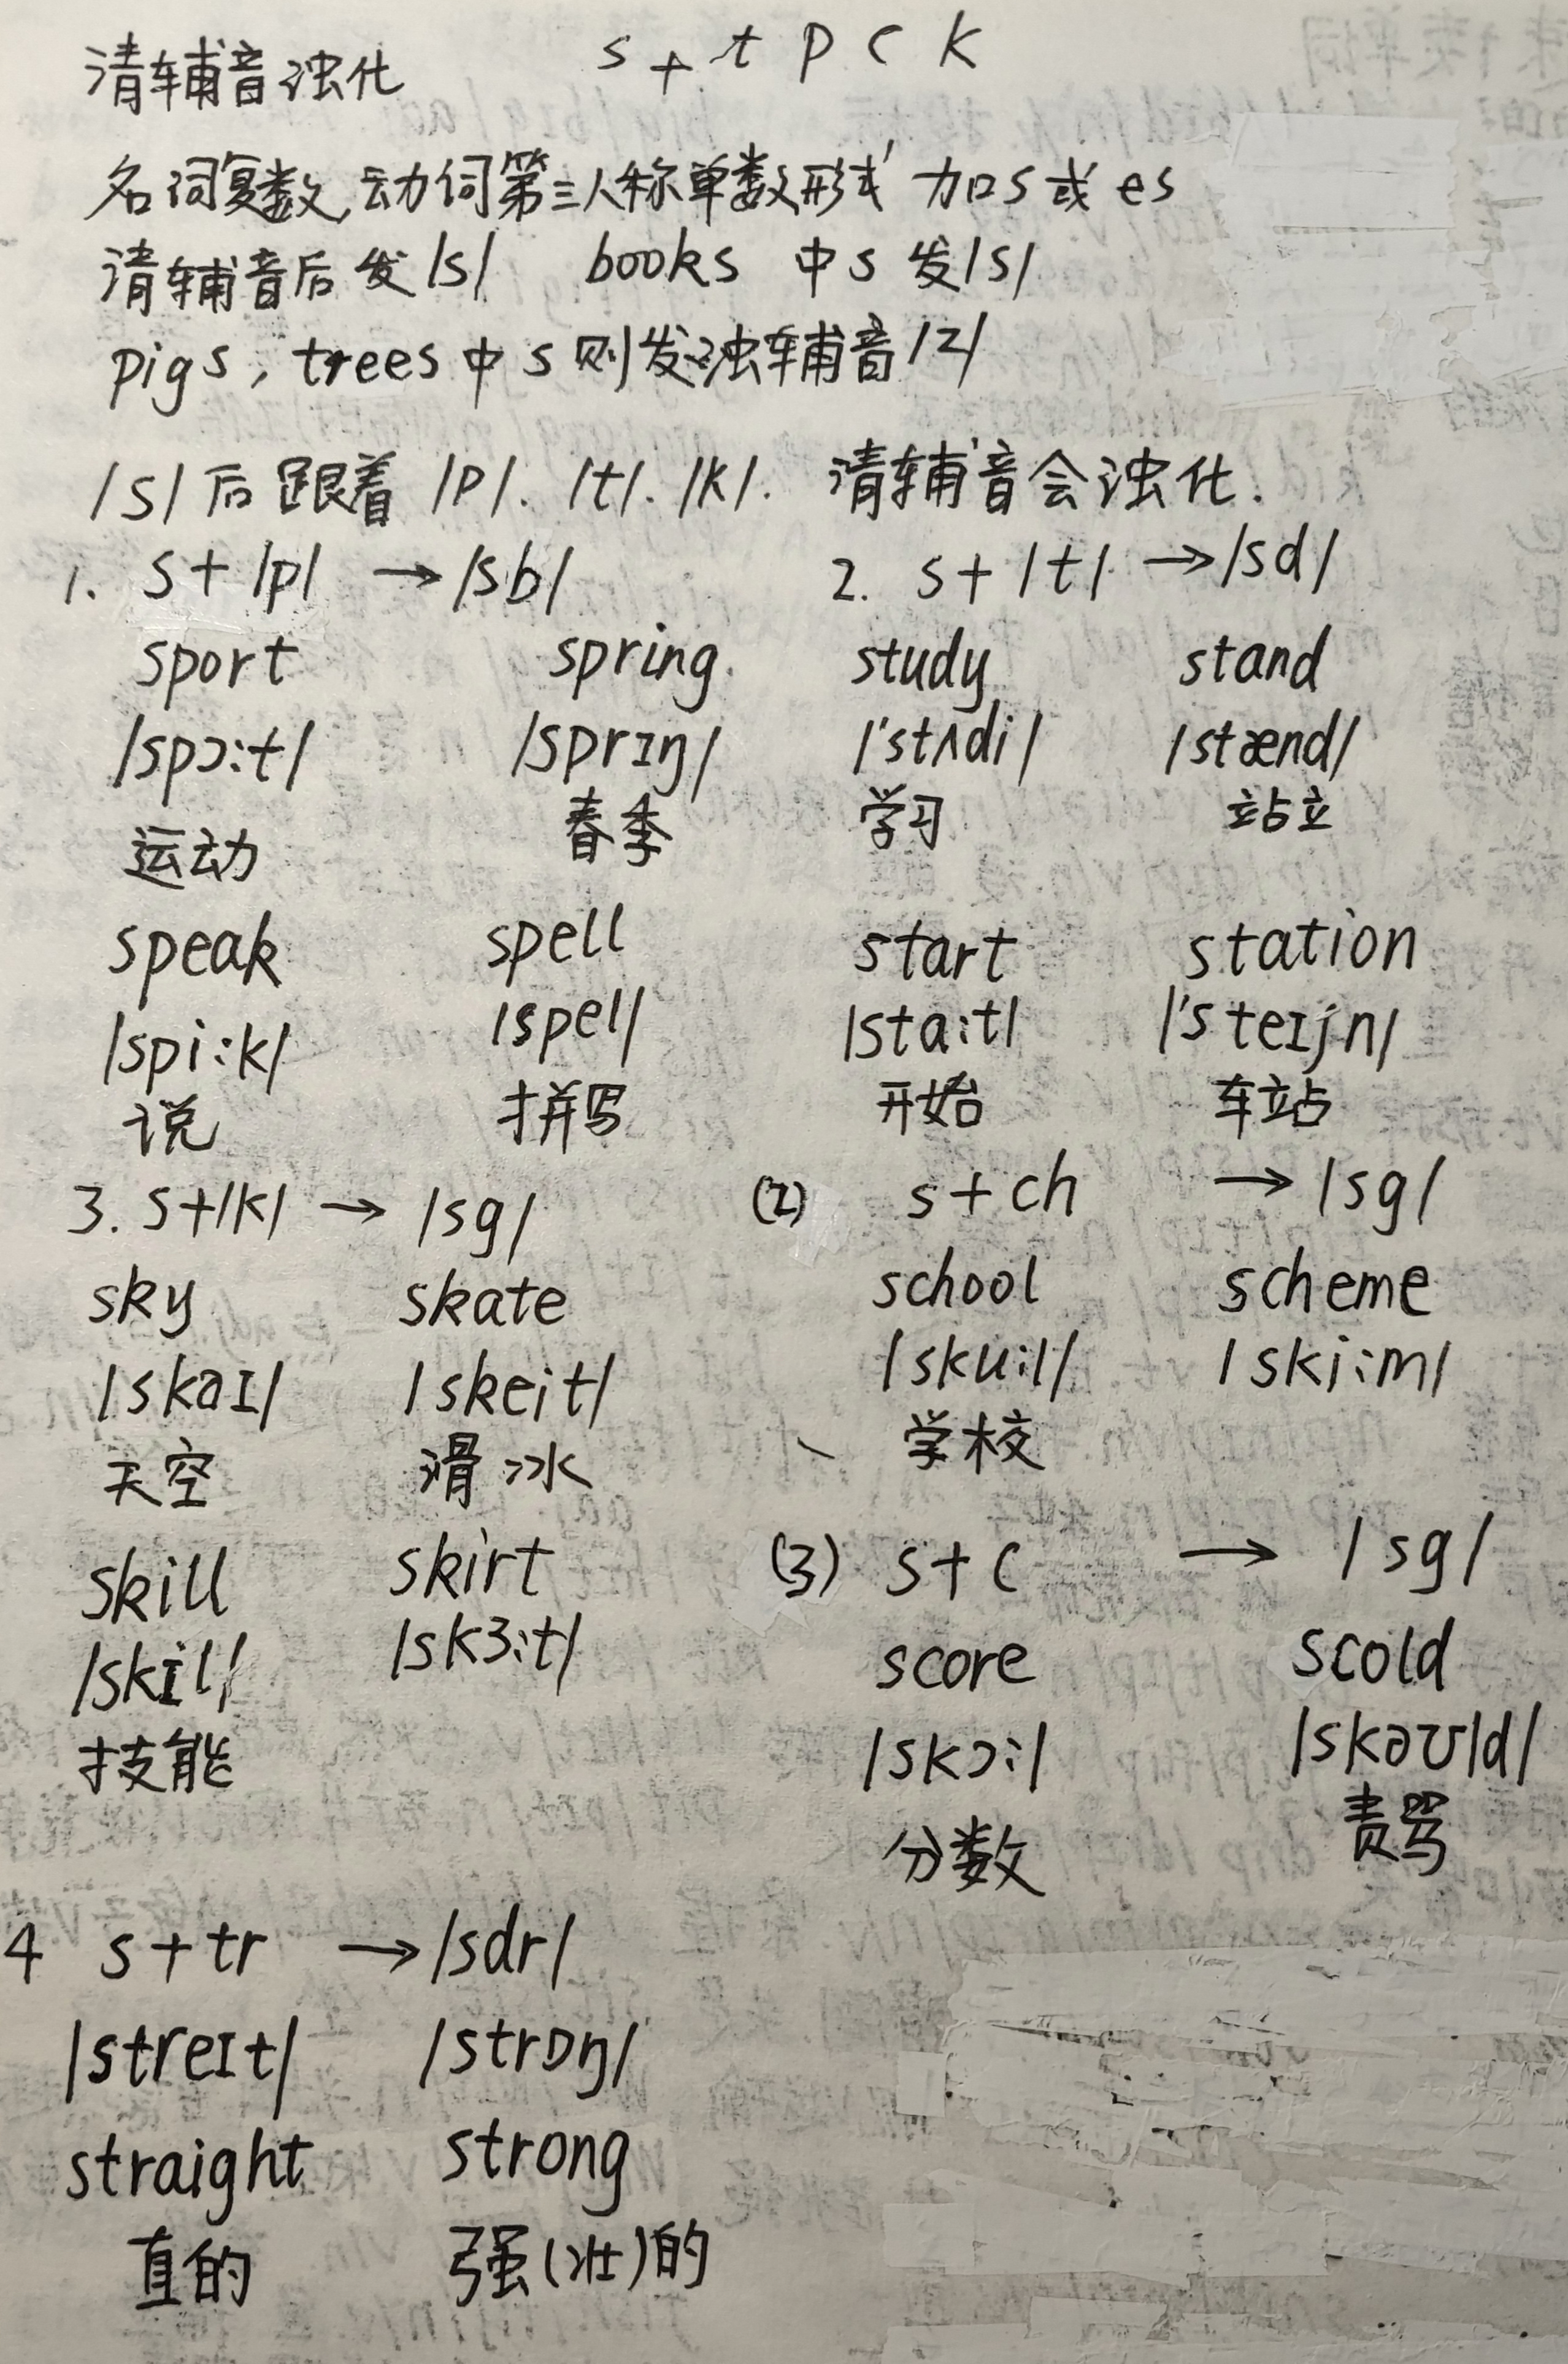 清辅音浊化 s + t p c k
名词复数,动词第三人称单数形式 加s或es
清辅音后发/s/ books 中s发/s/
pigs, trees中s则发浊辅音/z/
/s/后跟着/p/. /t/. /k/. 清辅音会浊化.
1. s+/p/ →/sb/
sport spring
/spɔ:t/ /sprɪŋ/
运动 春季
speak spell
/spi:k/ /spel/
说 拼写
2. s+/t/ →/sd/
study stand
/'stʌdi/ /stænd/
学习 站立
start station
/sta:t/ /'steɪʃn/
开始 车站
3. s+/k/ → /sg/
sky skate
/skaɪ/ /skeit/
天空 滑冰
skill skirt
/skɪl/ /skɜ:t/
技能
(2) s+ch → /sg/
school scheme
/sku:l/ /ski:m/
学校
(3) s+c → /sg/
score scold
/skɔ:/ /skəʊld/
分数 责骂
4 s+tr →/sdr/
/streɪt/ /strɒŋ/
straight strong
直的 强(壮)的